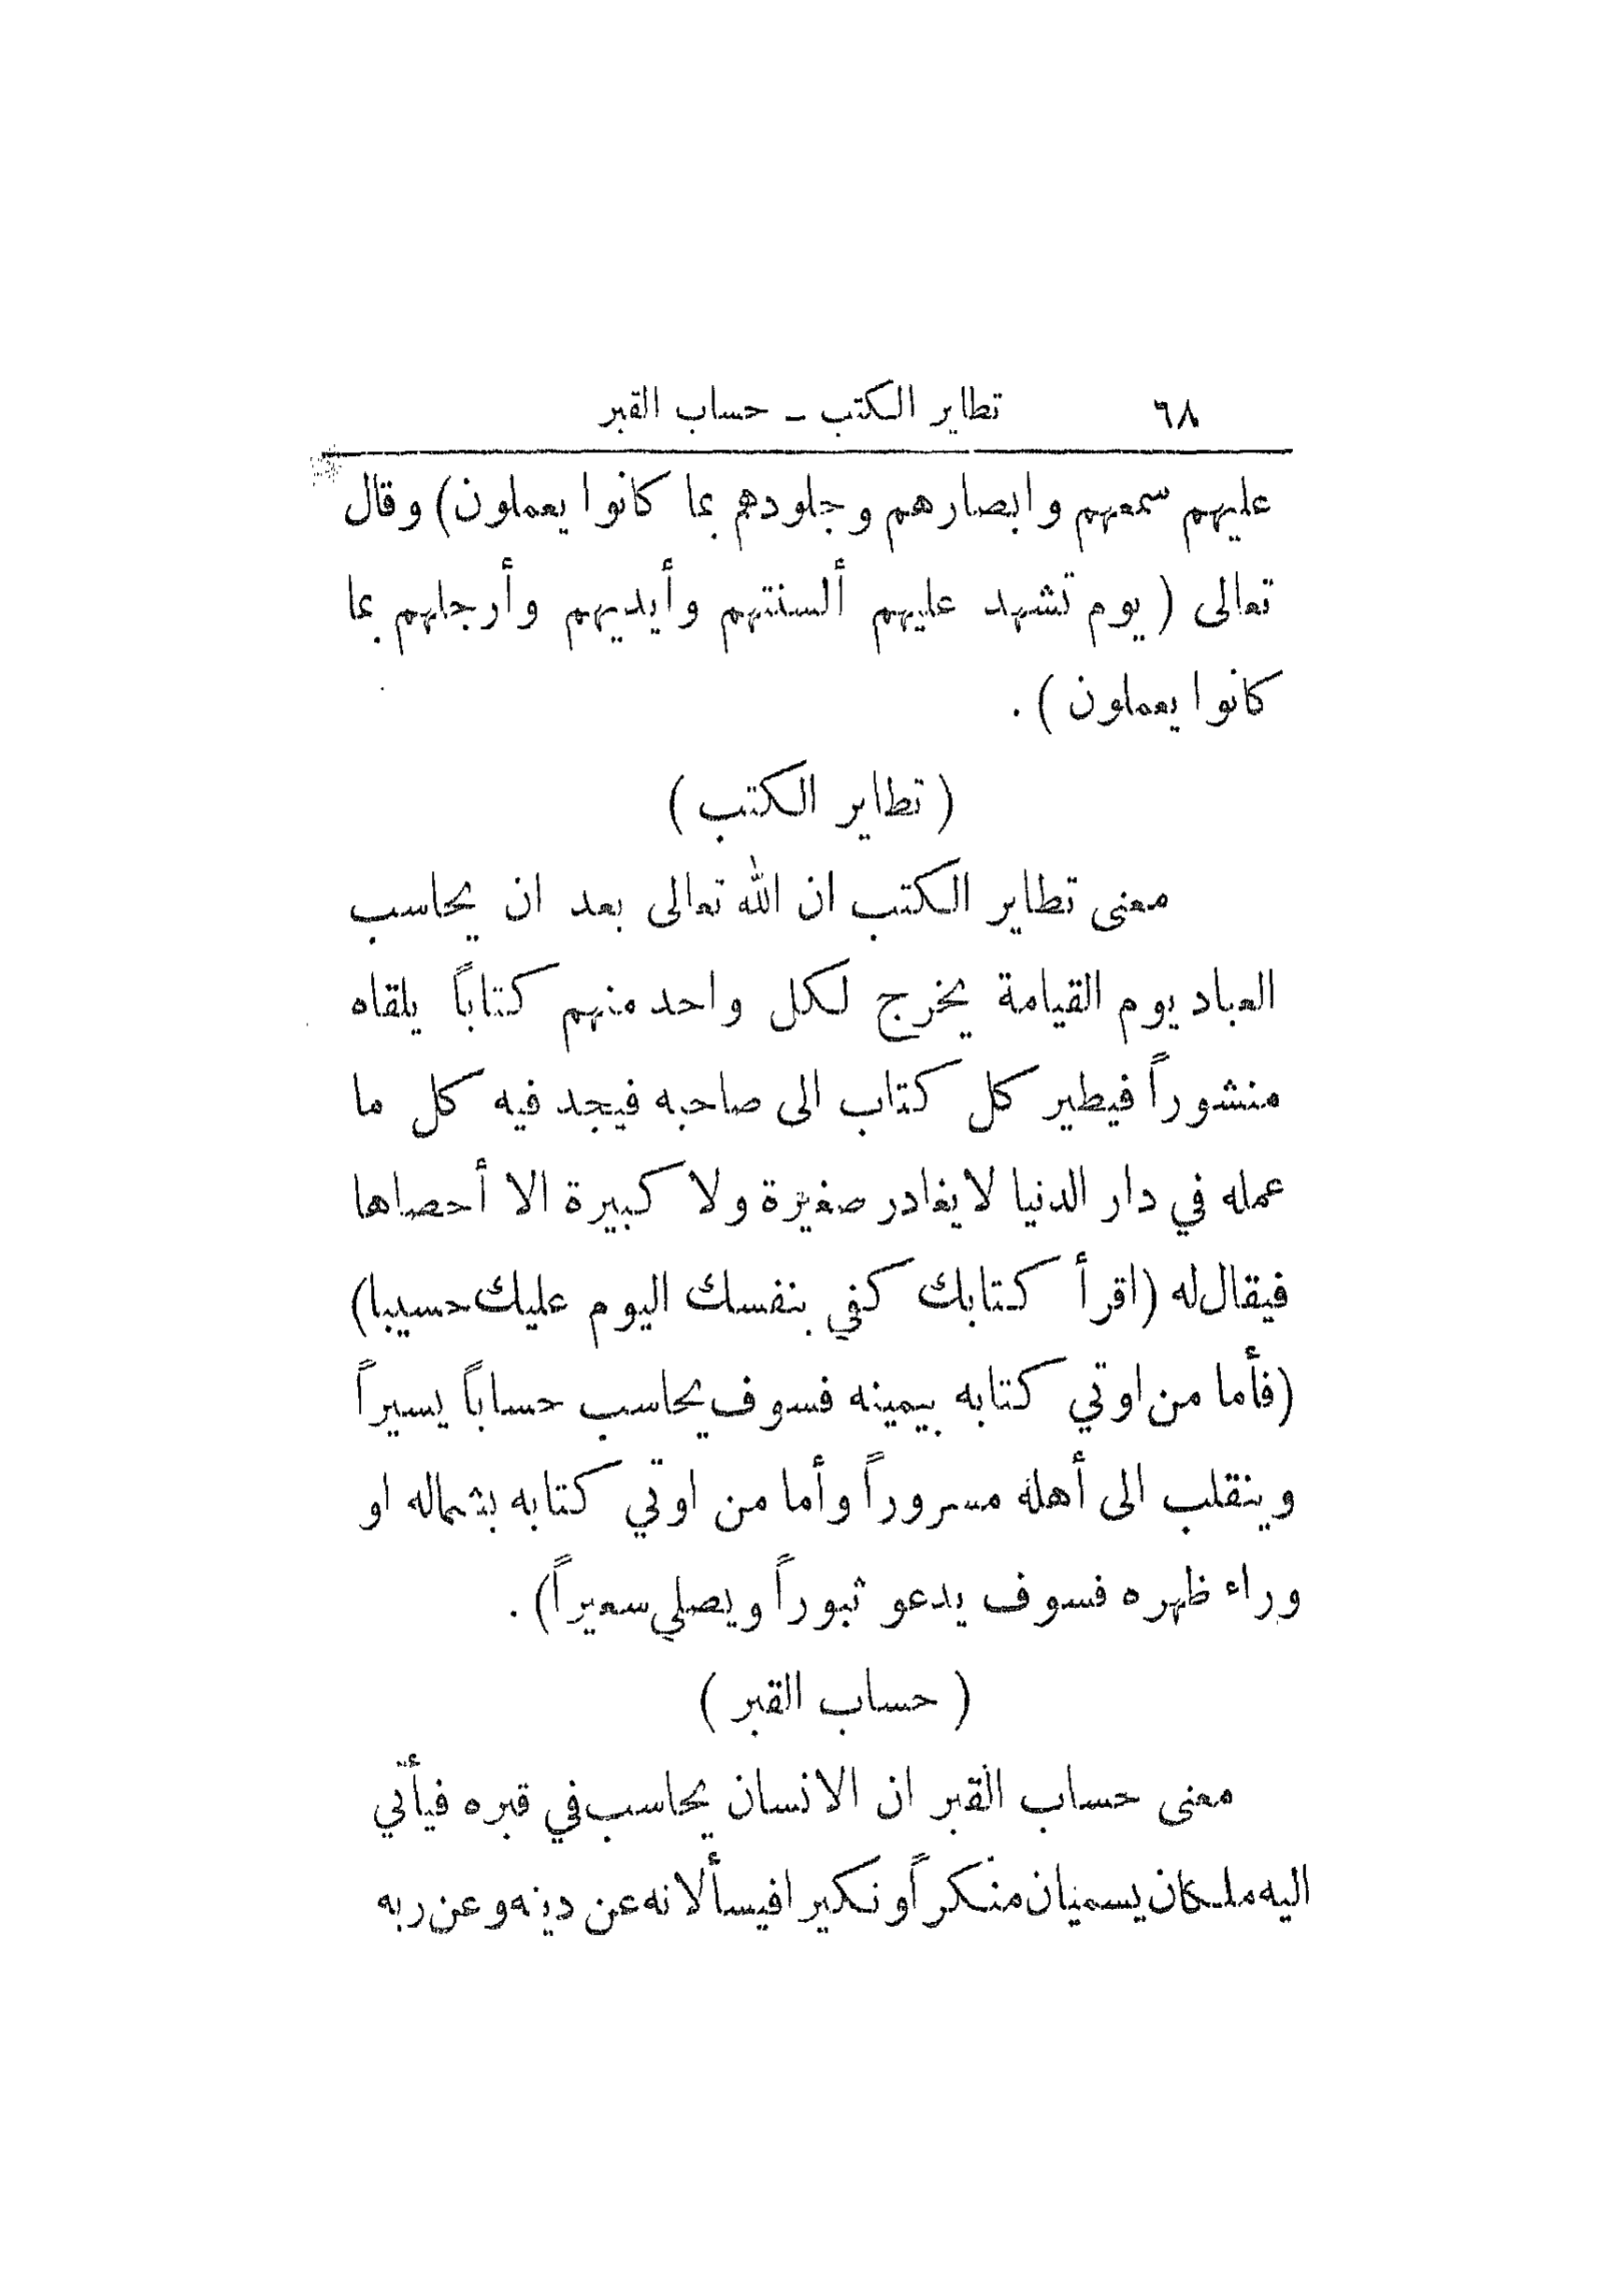 ٦٨ تطاير الكتب – حساب القبر
عليهم سمعهم وابصارهم وجلودهم بما كانوا يعملون) وقال
تعالى ( يوم تشهد عليهم ألسنتهم وأيديهم وأرجلهم بما
كانوا يعملون ) .
( تطاير الكتب )
معنى تطاير الكتب ان الله تعالى بعد ان يحاسب
العباد يوم القيامة يخرج لكل واحد منهم كتاباً يلقاه
منشوراً فيطير كل كتاب الى صاحبه فيجد فيه كل ما
عمله في دار الدنيا لا يغادر صغيرة ولا كبيرة الا أحصاها
فيقال له (اقرأ كتابك كفي بنفسك اليوم عليك حسيبا)
(فأما من اوتي كتابه بيمينه فسوف يحاسب حساباً يسيراً
وينقلب الى أهله مسروراً وأما من اوتي كتابه بشماله او
وراء ظهره فسوف يدعو ثبوراً ويصلي سعيراً) .
( حساب القبر )
معنى حساب القبر ان الانسان يحاسب في قبره فيأتي
اليه ملكان يسميان منكراً ونكيرا فيسألانه عن دينه وعن ربه